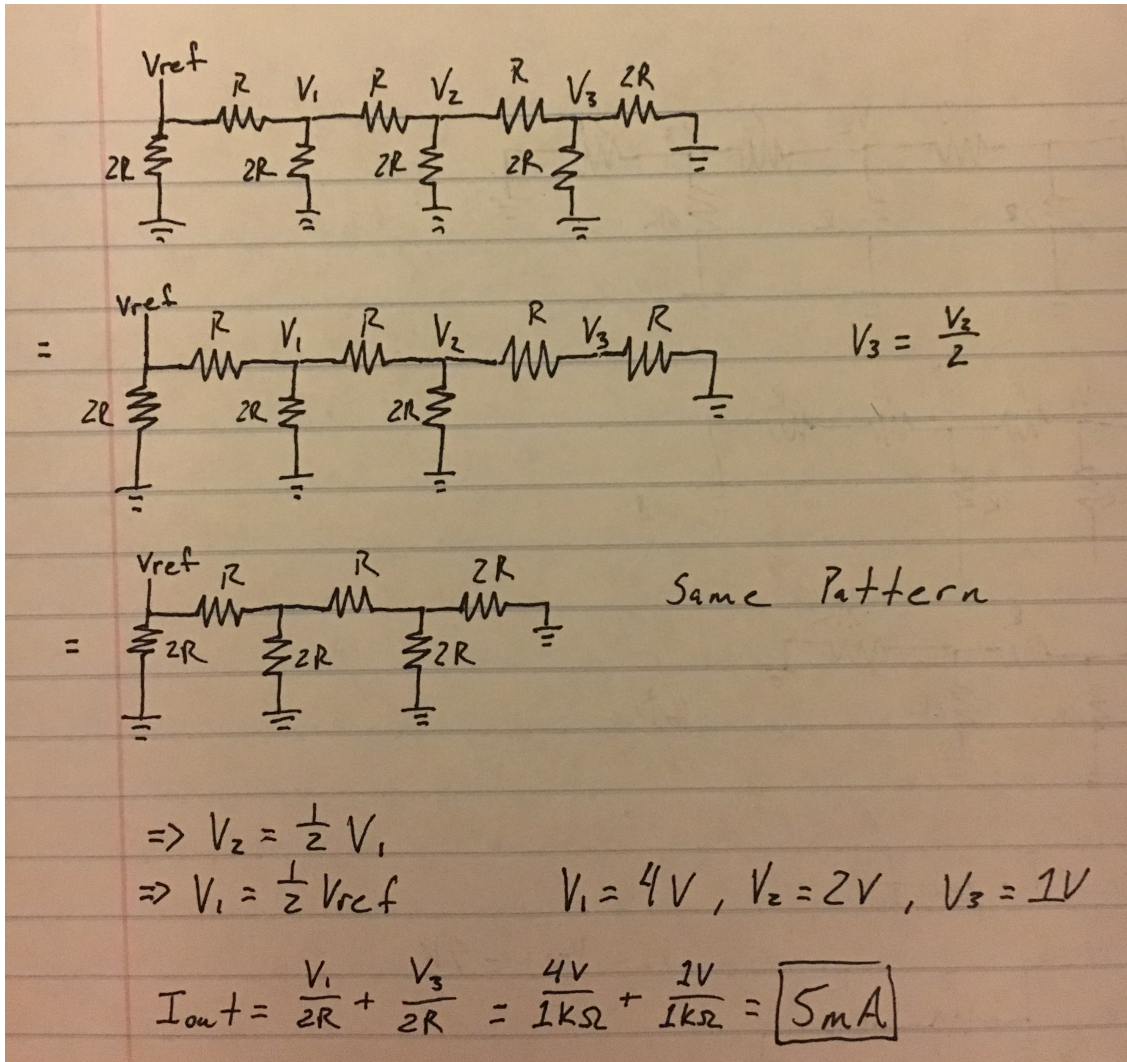 Vref R V₁ R V₂ R V₃ 2R
2R 2R 2R 2R
Vref R V₁ R V₂ R V₃ R
= V₃ = V₂/2
2R 2R 2R
Vref R R 2R Same Pattern
= 2R 2R 2R
=> V₂ = 1/2 V₁
=> V₁ = 1/2 Vref V₁ = 4V , V₂ = 2V , V₃ = 1V
Iout = V₁/2R + V₃/2R = 4V/1KΩ + 1V/1KΩ = 5mA